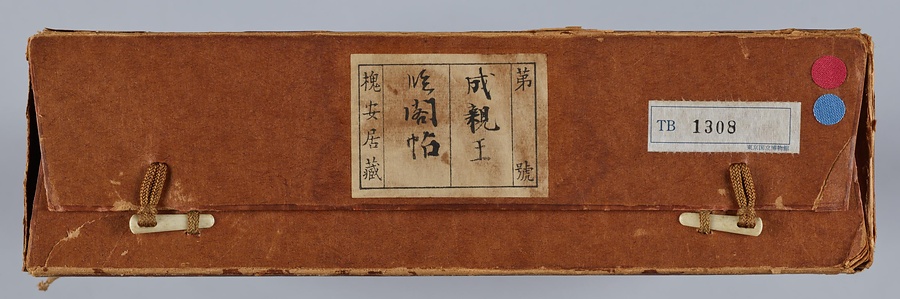 第 號
成親王
临阁帖
槐安居藏
TB 1308
東京国立博物館